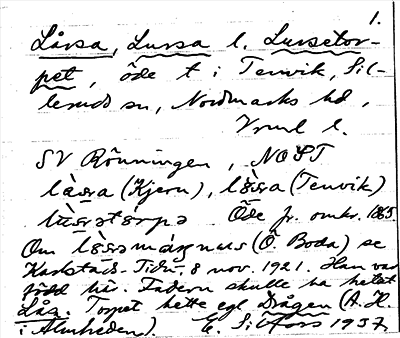 1.
Lårsa, Lursa l. Lursetor-
pet, öde t i Tenvik, Sil-
lerud sn, Nordmarks hd,
Vrml l.
SV Rönningen, NOST
làsra (Kjern), lo̊sra (Tenvik)
lùrstårpə Öde fr. omkr. 1865.
Om lo̊ssmágnus (Ö. Boda) se
Karlstads-Tidn. 8 nov. 1921. Han var
född här. Fadern skulle ha hetat
Lås. Torpet hette egl Drågen (A. H.
i Älmheden). E. Silfors 1937.